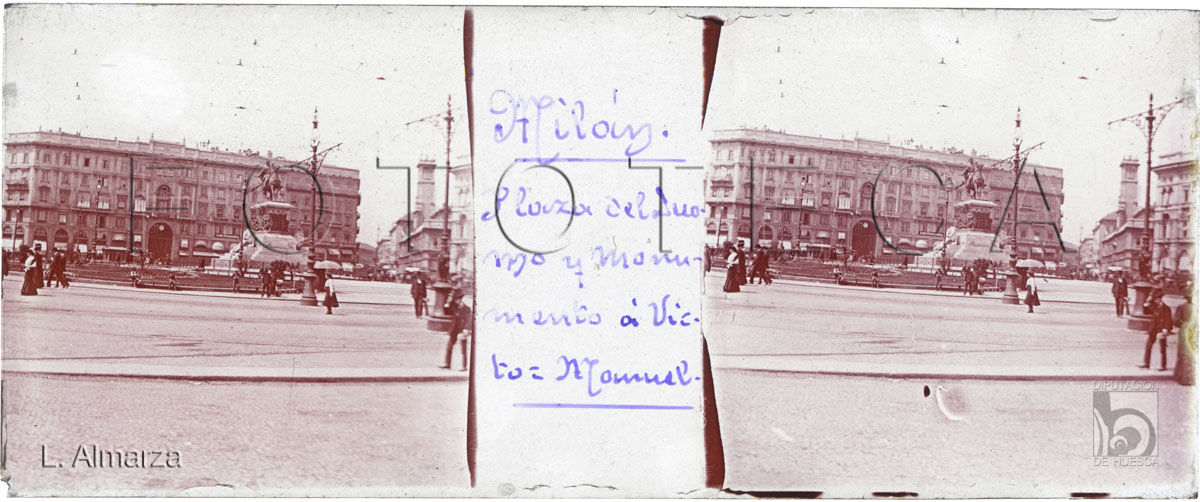 Milán.
Plaza del Duo-
mo y Monu-
mento á Víc-
to= Manuel.
FOTOTECA
L. Almarza
DIPUTACIÓN
DE HUESCA